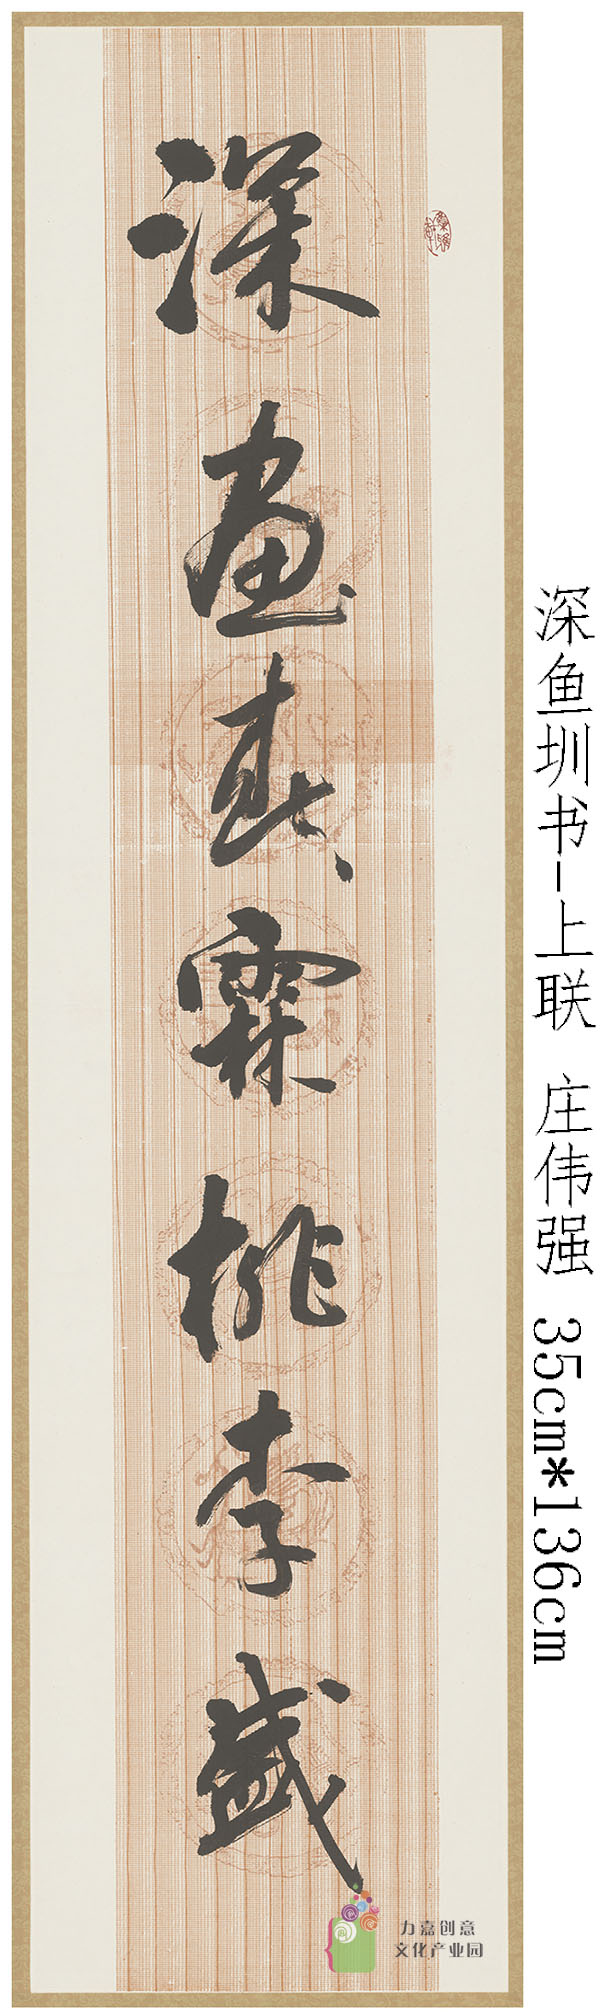 深画春霖桃李盛
深鱼圳书-上联 庄伟强 35cm*136cm
力嘉创意
文化产业园